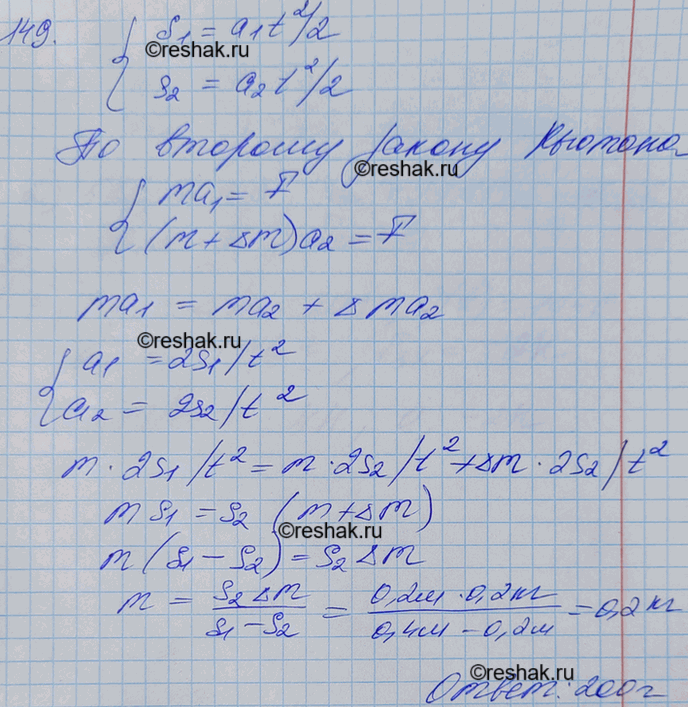 149. { s₁ = a₁t²/2
©reshak.ru
s₂ = a₂t²/2
По второму закону Ньютона
©reshak.ru
{ ma₁ = F
(m + Δm)a₂ = F
ma₁ = ma₂ + Δma₂
©reshak.ru
{ a₁ = 2s₁/t²
a₂ = 2s₂/t²
m · 2s₁/t² = m · 2s₂/t² + Δm · 2s₂/t²
ms₁ = s₂(m + Δm)
©reshak.ru
m(s₁ − s₂) = s₂Δm
m = s₂Δm / s₁ − s₂ = 0,2м · 0,2кг / 0,4м − 0,2м = 0,2кг
©reshak.ru
Ответ: 200г